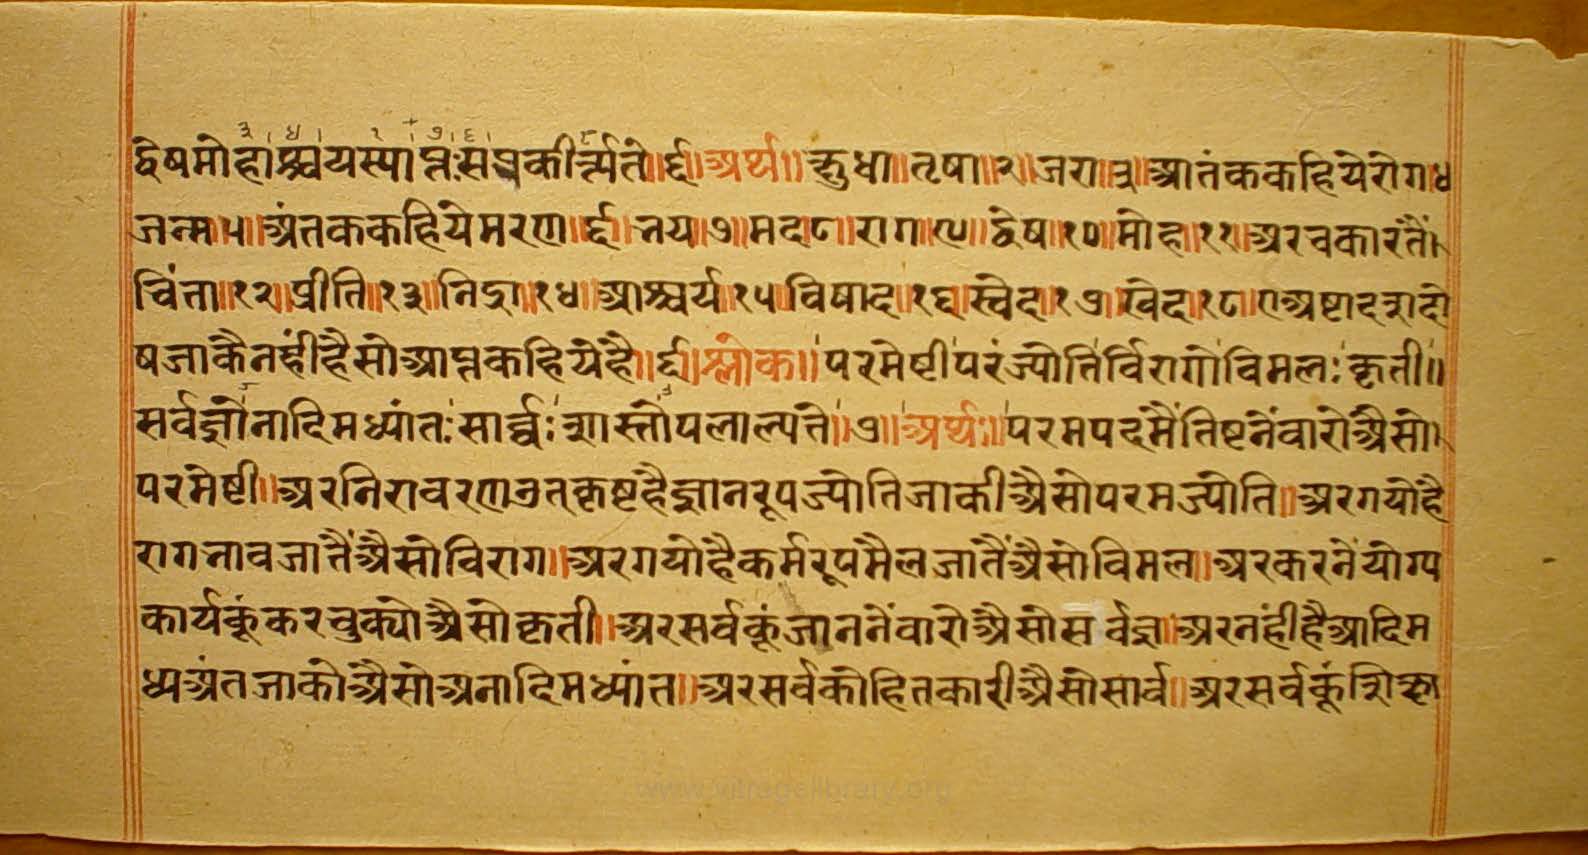 द्वेषमोहाश्चयस्याप्तःसप्रकीर्त्यते॥६॥अर्थ॥क्षुधा॥तृषा॥२॥जरा॥३॥आतंककहियेरोग॥४
जन्म॥५॥अंतककहियेमरण॥६॥भय॥७॥मद८॥राग॥९॥द्वेष॥१०॥मोह॥११॥अरचकारतैं।
चिंता॥१२॥प्रीति॥१३॥निद्रा॥१४॥आश्चर्य॥१५॥विषाद॥१६॥स्वेद॥१७॥खेद॥१८॥एअष्टादशदो
षजाकैनहींहैसोआप्तकहियेहै॥६॥श्लोक॥परमेष्टीपरंज्योतिर्विरागोविमलःकृती॥
सर्वज्ञोनादिमध्यांतःसार्व्वःशास्तोपलाल्यते॥७॥अर्थः॥परमपदमैंतिष्टनेंवारोअैसो।
परमेष्टी॥अरनिरावरणउतकृष्टहैज्ञानरूपज्योतिजाकीअैसोपरमज्योति॥अरगयोहै
रागभावजातैंअैसोविराग॥अरगयोहैकर्मरूपमैलजातैंअैसोविमल॥अरकरनेंयोग्य
कार्यकूंकरचुक्योअैसोकृती॥अरसर्वकूंजाननेंवारोअैसोसर्वज्ञ॥अरनहींहैआदिम
ध्यअंतजाकोअैसोअनादिमध्यांत॥अरसर्वकोहितकारीअैसोसार्व॥अरसर्वकूंशिक्षा
www.vitragalibrary.org